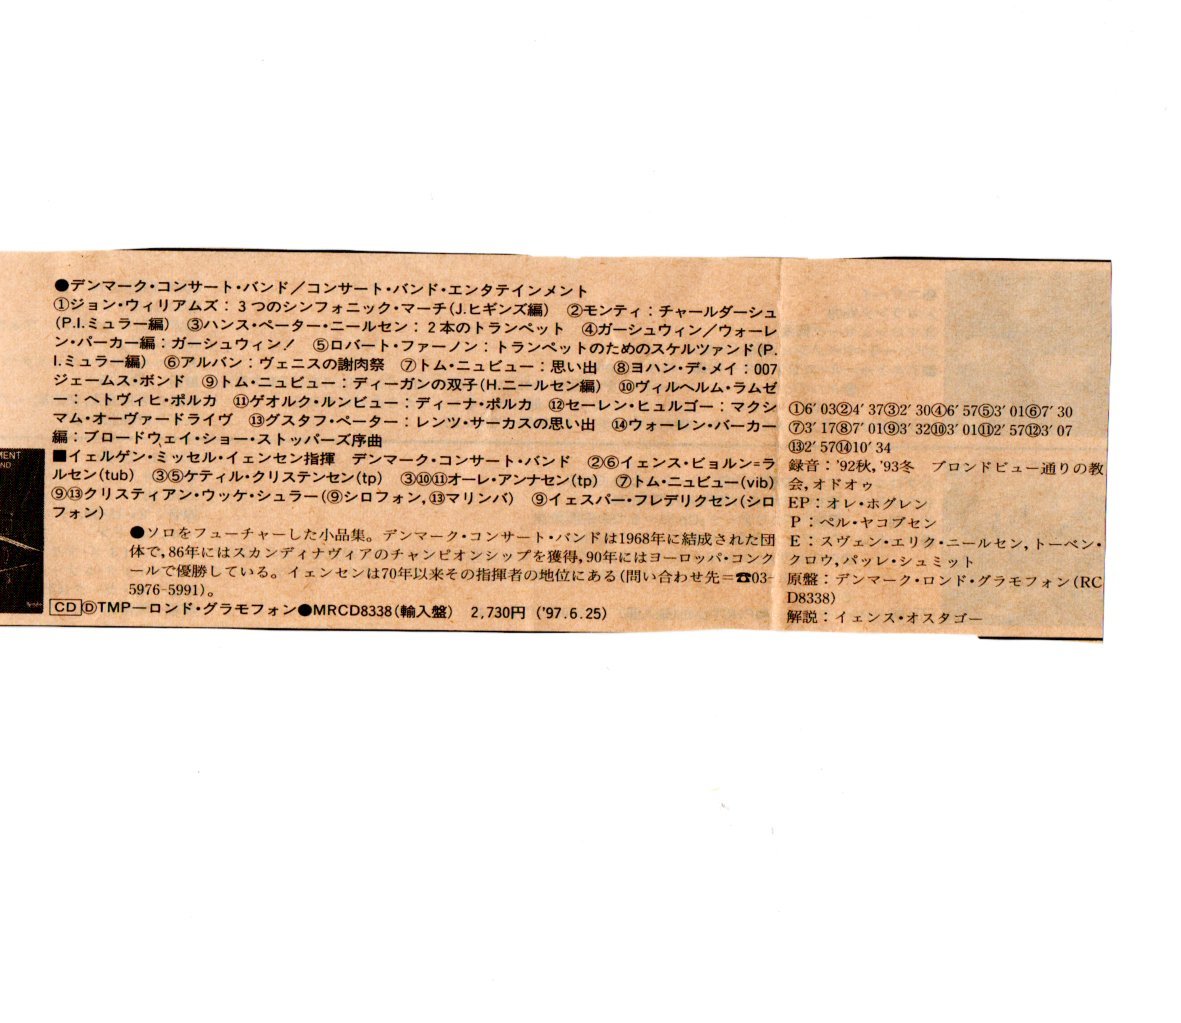 ●デンマーク・コンサート・バンド／コンサート・バンド・エンタテインメント
①ジョン・ウィリアムズ：3つのシンフォニック・マーチ(J.ヒギンズ編)　②モンティ：チャールダーシュ
(P.I.ミュラー編)　③ハンス・ペーター・ニールセン：2本のトランペット　④ガーシュウィン／ウォーレ
ン・パーカー編：ガーシュウィン！　⑤ロバート・ファーノン：トランペットのためのスケルツァンド(P.
I.ミュラー編)　⑥アルバン：ヴェニスの謝肉祭　⑦トム・ニュビュー：思い出　⑧ヨハン・デ・メイ：007
ジェームス・ボンド　⑨トム・ニュビュー：ディーガンの双子(H.ニールセン編)　⑩ヴィルヘルム・ラムゼ
ー：ヘトヴィヒ・ポルカ　⑪ゲオルク・ルンビュー：ディーナ・ポルカ　⑫セーレン・ヒュルゴー：マクシ
マム・オーヴァードライヴ　⑬グスタフ・ペーター：レンツ・サーカスの思い出　⑭ウォーレン・バーカー
編：ブロードウェイ・ショー・ストッパーズ序曲
■イェルゲン・ミッセル・イェンセン指揮　デンマーク・コンサート・バンド　②⑥イェンス・ビョルン=ラ
ルセン(tub)　③⑤ケティル・クリステンセン(tp)　③⑩⑪オーレ・アンナセン(tp)　⑦トム・ニュビュー(vib)
⑨⑬クリスティアン・ウッケ・シュラー(⑨シロフォン,⑬マリンバ)　⑨イェスパー・フレデリクセン(シロ
フォン)
●ソロをフューチャーした小品集。デンマーク・コンサート・バンドは1968年に結成された団
体で,86年にはスカンディナヴィアのチャンピオンシップを獲得,90年にはヨーロッパ・コンク
ールで優勝している。イェンセンは70年以来その指揮者の地位にある(問い合わせ先=☎03-
5976-5991)。
CD ⒹTMP—ロンド・グラモフォン●MRCD8338(輸入盤)　2,730円　('97.6.25)
①6′03②4′37③2′30④6′57⑤3′01⑥7′30
⑦3′17⑧7′01⑨3′32⑩3′01⑪2′57⑫3′07
⑬2′57⑭10′34
録音：'92秋,'93冬　ブロンドビュー通りの教
会,オドオゥ
EP：オレ・ホグレン
P：ペル・ヤコブセン
E：スヴェン・エリク・ニールセン,トーベン・
クロウ,パッレ・シュミット
原盤：デンマーク・ロンド・グラモフォン(RC
D8338)
解説：イェンス・オスタゴー
MENT
ND